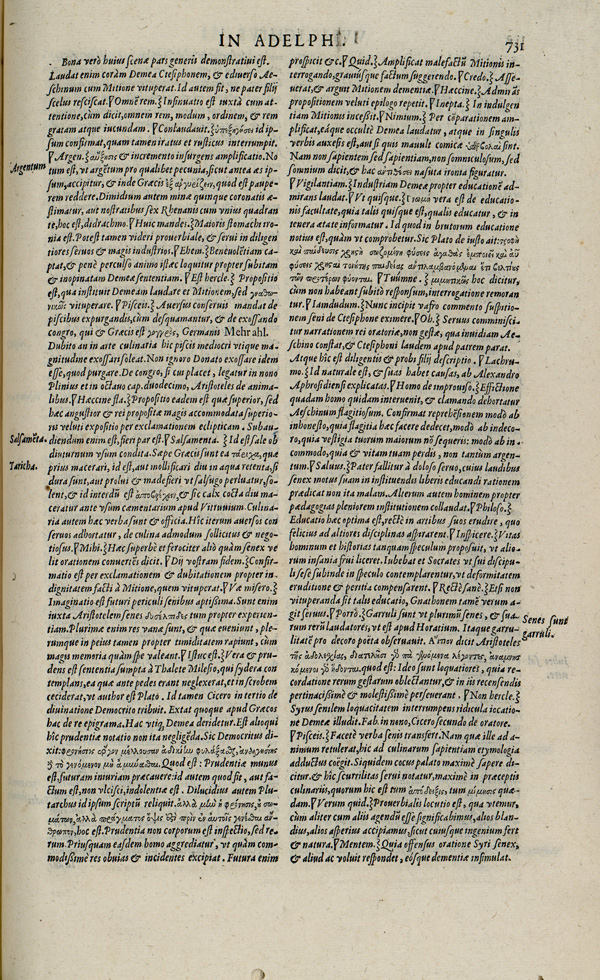 IN ADELPH.
731
Bona verò huius scenæ pars generis demonstratiui est.
Laudat enim coràm Demea Ctesiphonem, & eduerso Ae-
schinum cum Mitione vituperat. Id autem fit, ne pater filij
scelus resciscat. Omnē rem. Insinuatio est iuxtà cum at-
tentione, cum dicit, omnem rem, modum, ordinem, & rem
gratam atque iucundam. Conlaudauit. id ip-
sum confirmat, quam tamen iratus et rusticus interrumpit.
Argen. & incremento insurgens amplificatio. No
Argentum
tum est, vt argētum pro qualibet pecunia, sicut antea as ip-
sum, accipitur, & inde Græcis quod est paupe-
rem reddere. Dimidium autem minæ quinque coronatis æ-
stimatur, aut nostratibus sex Rhenanis cum vnius quadran
te, hoc est, didrachmo. Huic mandet. Maioris stomachi iro-
nia est. Potest tamen videri prouerbiale, & serui in diligen
tiores seruos & magis industrios. Ehem. Beneuolētiam ca-
ptat, & penè perculso animo istæc loquitur propter subitam
& inopinatam Demeæ sententiam. Est hercle. Propositio
est, qua instituit Demeam laudare et Mitionem, sed
vituperare. Pisceis. Auersus conseruis mandat de
piscibus expurgandis, cùm desquamantur, & de exossando
congro, qui & Græcis est γόγγρος, Germanis Mehrahl.
Dubito an in arte culinaria hic piscis mediocri vtique ma-
gnitudine exossari soleat. Non ignoro Donato exossare idem
esse, quod purgare. De congro, si cui placet, legatur in nono
Plinius et in octauo cap. duodecimo, Aristoteles de anima-
libus. Hæccine sta. Propositio eadem est quæ superior, sed
hæc angustior & rei propositæ magis accommodata superio-
ris veluti expositio per exclamationem eclipticam. Subau-
Salsamēta.
diendum enim est, fieri par est. Salsamenta. Id est sale ob
diuturnum vsum condita. Sæpe Græcis sunt ea τάριχα, quæ
Taricha.
prius macerari, id est, aut mollificari diu in aqua retenta, si
dura sunt, aut prolui & madefieri vt salsugo perluatur, so-
lent, & id interdū est & sic calx cocta diu ma-
ceratur ante vsum cæmentarium apud Vitruuium. Culina-
ria autem hæc verba sunt & officia. Hîc iterum auersos con
seruos adhortatur, de culina admodum sollicitus & nego-
tiosus. Mihi. Hæc superbè et ferociter aliò quàm senex ve
lit orationem conuertēs dicit. Dij vostram fidem. Confir-
matio est per exclamationem & dubitationem propter in-
dignitatem facti à Mitione, quem vituperat. Væ misero.
Imaginatio est futuri periculi senibus aptissima. Sunt enim
iuxta Aristotelem senes tum propter experien-
tiam. Plurima enim res vanæ sunt, & quæ eueniunt, ple-
rumque in peius tamen propter timiditatem rapiunt, cùm
magis memoria quàm spe valeant. Istuc est. Vera & pru-
dens est sententia sumpta à Thalete Milesio, qui sydera con
templans, ea quæ ante pedes erant neglexerat, et in scrobem
ceciderat, vt author est Plato. Id tamen Cicero in tertio de
diuinatione Democrito tribuit. Extat quoque apud Græcos
hac de re epigrama. Hac vtiq; Demea deridetur. Est alioqui
hîc prudentiæ notatio non ita negligēda. Sic Democritus di-
xit:
Quod est: Prudentiæ munus
est, futuram iniuriam præcauere: id autem quod fit, aut fa-
ctum est, non vlcisci, indolentiæ est. Dilucidius autem Plu-
tarchus id ipsum scriptū reliquit.
hoc est. Prudentia non corporum est inspectio, sed re-
rum. Priusquam easdem homo aggrediatur, vt quàm com-
modissimè res obuias & incidentes excipiat. Futura enim
prospicit & c. Quid. Amplificat malefactū Mitionis in-
terrogando, grauiusque factum suggerendo. Credo. Asse-
uerat, & arguit Mitionem dementiæ. Hæccine. Admirās
propositionem veluti epilogo repetit. Inepta. In indulgen
tiam Mitionis incessit. Nimium. Per cōparationem am-
plificat, eáque occultè Demea laudatur, atque in singulis
verbis auxesis est, aut si quis mauult comicæ sint.
Nam non sapientem sed sapientiam, non somniculosum, sed
somnium dicit, & hac nasuta ironia figuratur.
Vigilantiam. Industriam Demeæ propter educationē ad-
mirans laudat. Vt quisque. vera est de educatio-
nis facultate, quia talis quisque est, qualis educatur, & in
tenera ætate informatur. Id quod in brutorum educatione
notius est, quàm vt comprobetur. Sic Plato de iusto ait:
Tuúmne. hoc dicitur,
cum non habeant subitò responsum, interrogatione remoran
tur. Iamdudum. Nunc incipit vafro commento suspitio-
nem seni de Ctesiphone eximere. Oh. Seruus comminisci-
tur narrationem rei oratoriæ, non gestæ, qua inuidiam Ae-
schino constat, & Ctesiphoni laudem apud patrem parat.
Atque hic est diligentis & probi filij descriptio. Lachru-
mo. Id naturale est, & suas habet causas, ab Alexandro
Aphrodisiensi explicatas. Homo de improuiso. Effictione
quadam homo quidam interuenit, & clamando dehortatur
Aeschinum flagitiosum. Confirmat reprehēsionem modò ab
inhonesto, quia flagitia hæc facere dedecet, modò ab indeco-
ro, quia vestigia tuorum maiorum nō sequeris: modò ab in-
commodo, quia & vitam tuam perdis, non tantùm argen-
tum. Saluus. Pater fallitur à doloso seruo, cuius laudibus
senex motus suam in instituendis liberis educandi rationem
prædicat non ita malam. Alterum autem hominem propter
pædagogiæ pleniorem institutionem collaudat. Philoso.
Educatio hæc optima est, rectè in artibus suos erudire, quo
felicius ad altiores disciplinas aspirarent. Inspicere. Vitas
hominum et historias tanquam speculum proposuit, vt alio-
rum insania frui liceret. Iubebat et Socrates vt sui discipu-
li sese subinde in speculo contemplarentur, vt deformitatem
eruditione & peritia compensarent. Rectè sanè. Etsi non
vituperanda sit talis educatio, Gnathonem tamē verum a-
git seruus. Porrò. Garruli sunt vt plurimū senes, & sua-
Senes sunt
garruli.
rum rerū laudatores, vt est apud Horatium. Itaque garru-
litatē pro decoro poëta obseruauit. dicit Aristoteles
quod est: Ideo sunt loquatiores, quia re-
cordatione rerum gestarum oblectantur, & in iis recensendis
pertinacissimè & molestissimè perseuerant. Non hercle.
Syrus senilem loquacitatem interrumpens ridicula iocatio-
ne Demeæ illudit. Fab. in nono, Cicero secundo de oratore.
Pisceis. Facetè verba senis transfert. Nam quæ ille ad a-
nimum retulerat, hic ad culinarum sapientiam etymologia
adductus coëgit. Siquidem cocus palato maximè sapere di-
citur, & hîc scurrilitas serui notatur, maximè in præceptis
culinariis, quorum hîc est tum tum μίμησις quæ-
dam. Verum quid. Prouerbialis locutio est, qua vtemur,
cùm aliter cum aliis agendū esse significabimus, alios blan-
dius, alios asperius accipiamus, sicut cuiusque ingenium fert
& natura. Mentem. Quia offensus oratione Syri senex,
& aliud ac voluit respondet, eósque dementiæ insimulat.